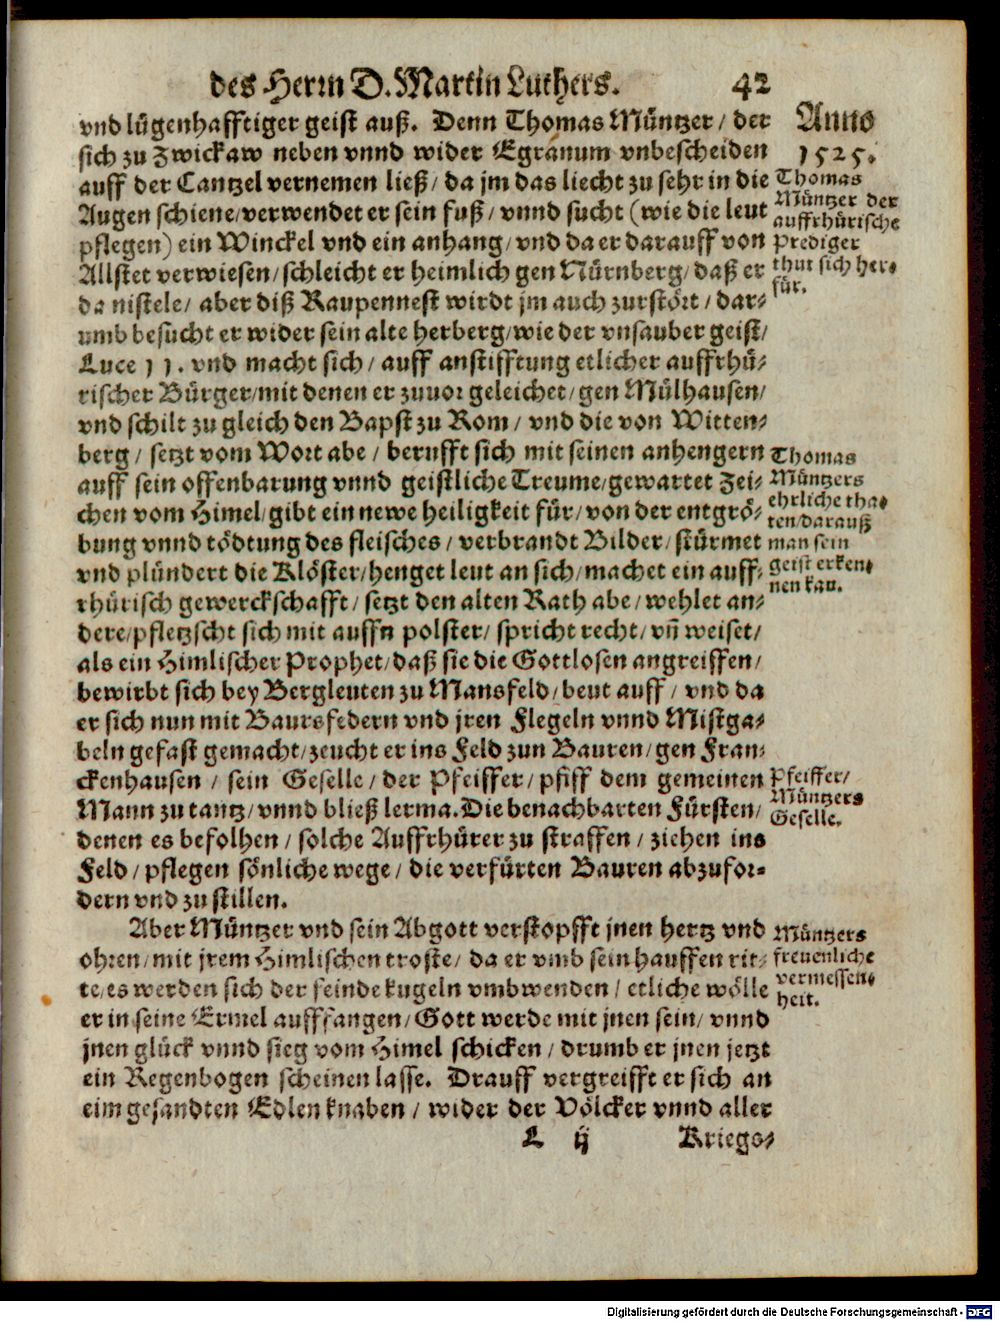 des Herrn D. Martin Luthers. 42
vnd lügenhafftiger geist auß. Denn Thomas Müntzer / der
sich zu Zwickaw neben vnnd wider Egranum vnbescheiden
auff der Cantzel vernemen ließ / da jm das liecht zu sehr in die
Augen schiene / verwendet er sein fuß / vnnd sucht (wie die leut
pflegen) ein Winckel vnd ein anhang / vnd da er darauff von
Allstet verwiesen / schleicht er heimlich gen Nürnberg / daß er
da nistele / aber diß Raupennest wirdt jm auch zurstört / dar-
umb besucht er wider sein alte herberg / wie der vnsauber geist /
Luce 11. vnd macht sich / auff anstifftung etlicher auffrhü-
rischer Bürger / mit denen er zuuor geleichet / gen Mülhausen /
vnd schilt zu gleich den Bapst zu Rom / vnd die von Witten-
berg / setzt vom Wort abe / berufft sich mit seinen anhengern
auff sein offenbarung vnnd geistliche Treume / gewartet Zei-
chen vom Himel / gibt ein newe heiligkeit für / von der entgrö-
bung vnnd tödtung des fleisches / verbrandt Bilder / stürmet
vnd plündert die Klöster / henget leut an sich / machet ein auff-
rhürisch gewerckschafft / setzt den alten Rath abe / wehlet an-
dere / pfletzscht sich mit auffn polster / spricht recht / vñ weiset /
als ein Himlischer Prophet / daß sie die Gottlosen angreiffen /
bewirbt sich bey Bergleuten zu Mansfeld / beut auff / vnd da
er sich nun mit Baursfedern vnd jren Flegeln vnnd Mistga-
beln gefast gemacht / zeucht er ins Feld zun Bauren / gen Fran-
ckenhausen / sein Geselle / der Pfeiffer / pfiff dem gemeinen
Mann zu tantz / vnnd bließ lerma. Die benachbarten Fürsten /
denen es befolhen / solche Auffrhürer zu straffen / ziehen ins
Feld / pflegen sönliche wege / die verfürten Bauren abzufor-
dern vnd zu stillen.
Aber Müntzer vnd sein Abgott verstopfft jnen hertz vnd
ohren / mit jrem Himlischen troste / da er vmb sein hauffen rit-
te / es werden sich der feinde kugeln vmbwenden / etliche wölle
er in seine Ermel aufffangen / Gott werde mit jnen sein / vnnd
jnen glück vnnd sieg vom Himel schicken / drumb er jnen jetzt
ein Regenbogen scheinen lasse. Drauff vergreifft er sich an
eim gesandten Edlen knaben / wider der Völcker vnnd aller
L ij Kriegs-
Anno
1525.
Thomas
Müntzer der
auffrhürische
Prediger
thut sich her-
für.
Thomas
Müntzers
ehrliche tha-
ten / darauß
man sein
geist erken-
nen kan.
Pfeiffer /
Müntzers
Geselle.
Müntzers
freuenliche
vermessen-
heit.
Digitalisierung gefördert durch die Deutsche Forschungsgemeinschaft - DFG